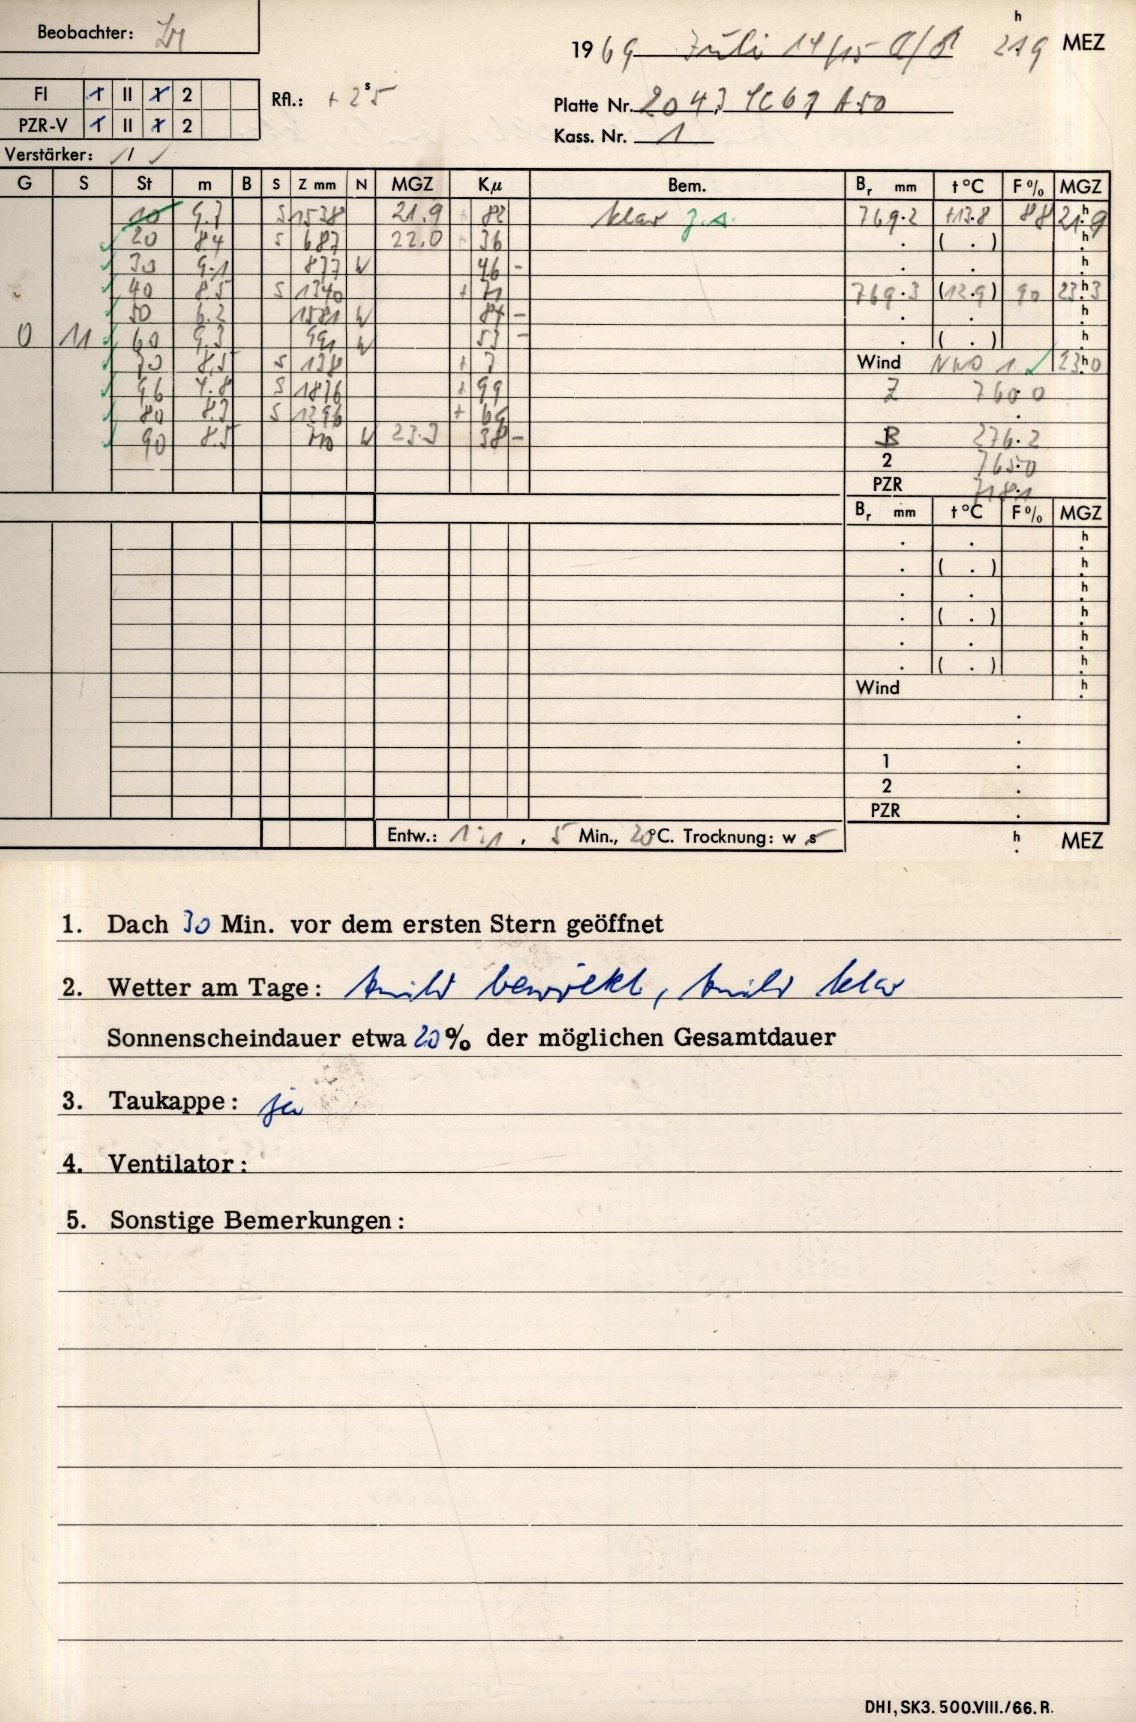 Beobachter:
h
1969 Juli 14/15 21.9 MEZ
FI 1 II 1 2
PZR-V 1 II 1 2
Rfl.: + 2ˢ5
Platte Nr. 2043,
Kass. Nr. 1
Verstärker: /
G S St m B S Z mm N MGZ Kμ Bem. Bᵣ mm t°C F% MGZ
10 9.3 S 1538 21.9 + 82 klar z.s. 769.2 +13.8 88 21.9 h
20 8.4 S 687 22.0 + 36 . ( . ) h
30 9.1 877 W 46 - . . h
40 8.5 S 1340 + 71 769.3 (12.9) 90 23.3 h
50 6.2 1581 W 84 - . . h
0 11 60 9.3 991 W 53 - . ( . ) h
70 8.5 S 138 + 7 Wind NWO 1 23.0 h
96 7.8 S 1876 + 99 Z 760.0
80 8.3 S 1296 + 69 .
90 8.5 710 W 23.3 38 - B 276.2
2 765.0
PZR 718.1
Bᵣ mm t°C F% MGZ
. . h
. ( . ) h
. . h
. ( . ) h
. . h
. ( . ) h
Wind h
.
.
1 .
2 .
PZR .
Entw.: 1:1 , 5 Min., 20°C. Trocknung: w s h MEZ
1. Dach 30 Min. vor dem ersten Stern geöffnet
2. Wetter am Tage: bewölkt, klar
Sonnenscheindauer etwa 20% der möglichen Gesamtdauer
3. Taukappe: ja
4. Ventilator:
5. Sonstige Bemerkungen:
DHI, SK3. 500.VIII./66. R.